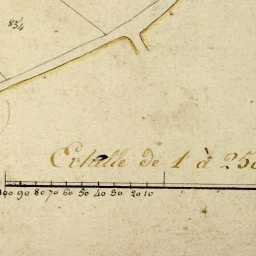 834
Echelle de 1 à 250
100 90 80 70 60 50 40 30 20 10